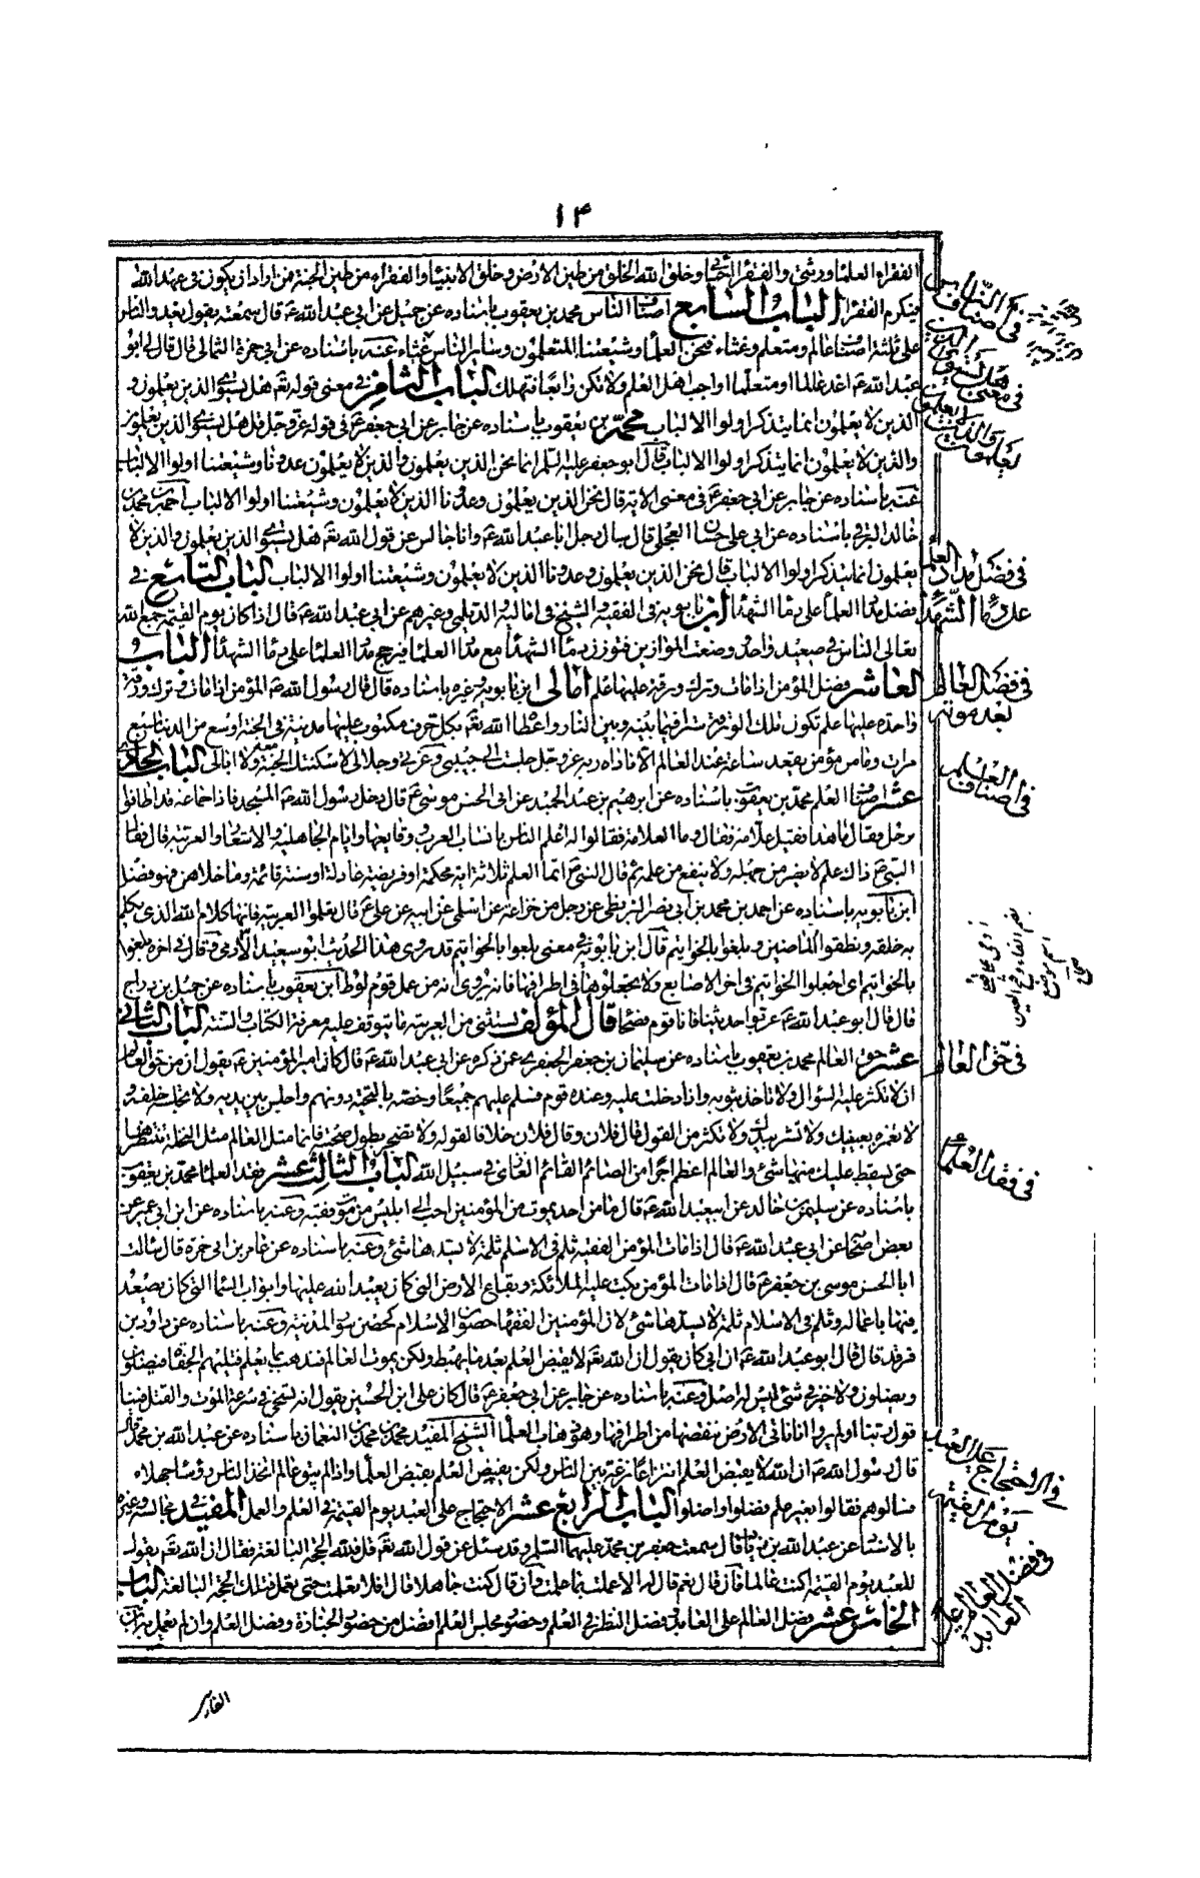 ١٤
الفقراء العلما ورثتى والفقراء أحبائى وخلق الله الخلق من طين الارض وخلق الانبياء والفقراء من طين الجنة فمن اراد ان يكون فى عهد الله
فيكرم الفقرا الباب السابع اصناف الناس محمد بن يعقوب باسناده عن جميل عن ابى عبد الله ع قال سمعته يقول يغد والناس
على ثلثة اصناف عالم ومتعلم وغثاء فنحن العلما وشيعتنا المتعلمون وساير الناس غثاء عنه باسناده عن ابى حمزة الثمالى قال قال لى ابو
عبد الله ع اغد عالما او متعلما او احب اهل العلم ولا تكن رابعا فتهلك الباب الثامن فى معنى قوله تع هل يستوى الذين يعلمون و
الذين لا يعلمون انما يتذكر اولوا الالباب محمد بن يعقوب باسناده عن جابر عن ابى جعفر ع فى قوله عز وجل قل هل يستوى الذين يعلمون
والذين لا يعلمون انما يتذكر اولوا الالباب قال ابو جعفر عليه السلم انما نحن الذين يعلمون والذين لا يعلمون عدونا وشيعتنا اولوا الالباب
عنه باسناده عن جابر عن ابى جعفر ع فى معنى الاية قال نحن الذين يعلمون وعدونا الذين لا يعلمون وشيعتنا اولوا الالباب احمد بن محمد بن
خالد البرقى باسناده عن ابى على حسان العجلى قال سال رجل ابا عبد الله ع وانا جالس عن قول الله تع هل يستوى الذين يعلمون والذين لا
يعلمون انما يتذكر اولوا الالباب قال نحن الذين يعلمون وعدونا الذين لا يعلمون وشيعتنا اولوا الالباب الباب التاسع فى
فضل مداد العلما على دماء الشهدا ابن بابويه فى الفقيه والشيخ فى اماليه والديلمى وغيرهم عن ابى عبد الله ع قال اذا كان يوم القيمة جمع الله
تعالى الناس فى صعيد واحد ووضعت الموازين فتوزن دماء الشهدا مع مداد العلما فيرجح مداد العلما على دماء الشهدا الباب
العاشر فضل المؤمن اذا مات وترك ورقة عليها علم امالى ابن بابويه وغيره باسناده قال قال رسول الله ع المؤمن اذا مات وترك ورقة
واحدة عليها علم تكون تلك الورقة سترا فيما بينه وبين النار واعطاه الله تع بكل حرف مكتوب عليها مدينة فى الجنة اوسع من الدنيا سبع
مرات وما من مؤمن يقعد ساعة عند العالم الا ناداه ربه عز وجل جلست الى حبيبى وعزتى وجلالى لاسكنتك الجنة معه ولا ابالى الباب الحادى
عشر اصناف العلم محمد بن يعقوب باسناده عن ابرهيم بن عبد الحميد عن ابى الحسن موسى ع قال دخل رسول الله ع المسجد فاذا جماعة قد اطافوا
برجل فقال ما هذا فقيل علامة فقال وما العلامة فقالوا له اعلم الناس بانساب العرب ووقايعها وايام الجاهلية والاشعار والعربية قال فقال
النبى ع ذاك علم لا يضر من جهله ولا ينفع من علمه ثم قال النبى ع انما العلم ثلاثة اية محكمة او فريضة عادلة او سنة قائمة وما خلاهن فهو فضل
ابن بابويه باسناده عن احمد بن محمد بن ابى نصر البزنطى عن رجل من خزاعة عن اسلمى عن ابيه عن على ع قال تعلموا العربية فانها كلام الله الذى يكلم
به خلقه ونظقوا الماضين وبلغوا بالخواتيم قال ابن بابويه فى معنى بلعوا بالخواتيم قد روى هذا الحديث ابو سعيد الآدمى وقال فى اخره بلعوا
بالخواتيم اى اجعلوا الخواتيم فى اخر الاصابع ولا تجعلوها فى اطرافها فانه يروى انه من عمل قوم لوط ابن يعقوب باسناده عن جميل بن دراج
قال قال ابو عبد الله ع عربوا حديثنا فانا قوم فصحا قال المؤلف يستثنى من العربية ما يتوقف عليه معرفة الكتاب والسنة الباب الثانى
عشر حق العالم محمد بن يعقوب باسناده عن سليمان بن جعفر الجعفرى عمن ذكره عن ابى عبد الله ع قال كان امير المؤمنين ع يقول ان من حق العالم
ان لا تكثر عليه السؤال ولا تاخذ بثوبه واذا دخلت عليه وعنده قوم فسلم عليهم جميعا وخصه بالتحية دونهم واجلس بين يديه ولا تجلس خلفه و
لا تغمز بعينيك ولا تشر بيدك ولا تكثر من القول قال فلان وقال فلان خلافا لقوله ولا تضجر بطول صحبته فانما مثل العالم مثل النخلة تنتظرها
حتى يسقط عليك منها شئ والعالم اعظم اجرا من الصائم القائم الغازى فى سبيل الله الباب الثالث عشر فقد العلما محمد بن يعقوب
باسناده عن سليمن بن خالد عن ابى عبد الله ع قال ما من احد يموت من المؤمنين احب الى ابليس من موت فقيه وعنه باسناده عن ابن ابى عمير عن
بعض اصحابنا عن ابى عبد الله ع قال اذا مات المؤمن الفقيه ثلم فى الاسلم ثلمة لا يسدها شئ وعنه باسناده عن على بن ابى حمزة قال سالت
ابا الحسن موسى بن جعفر ع قال اذا مات المؤمن بكت عليه الملائكة وبقاع الارض التى كان يعبد الله عليها وابواب السماء التى كان يصعد
فيها باعماله وثلم فى الاسلام ثلمة لا يسدها شئ لان المؤمنين الفقها حصون الاسلام كحصن سور المدينة وعنه باسناده عن داود بن
فرقد قال قال ابو عبد الله ع ان ابى كان يقول ان الله تع لا يقبض العلم بعد ما يهبط ولكن يموت العالم فيذهب بما يعلم فتليهم الجفاة فيضلون
ويضلون ولا خير فى شئ ليس له اصل وعنه باسناده عن جابر عن ابى جعفر ع قال كان على ابن الحسين يقول انه يسخى فى سرعة الموت والقتل فينا
قول ربنا اولم يروا انا ناتى الارض ننقصها من اطرافها وهو ذهاب العلما الشيخ المفيد محمد بن محمد بن النعمان باسناده عن عبد الله بن محمد قال
قال رسول الله ع ان الله لا يقبض العلم انتزاعا ينتزعه بين الناس ولكن يقبض العلم بقبض العلما واذا لم يبق عالم اتخذ الناس رؤسا جهلاء
فسالوهم فقالوا بغير علم فضلوا واضلوا الباب الرابع عشر الاحتجاج على العبد يوم القيمة فى العلم والعمل المفيد فى مجالسه وغيره
بالاسناد عن عبد الله بن زياد قال سمعت جعفر بن محمد عليهما السلم وقد سئل عن قول الله تع قل فلله الحجة البالغة فقال ان الله تع يقول
للعبد يوم القيمة اكنت عالما فان قال نعم قال له الا عملت بما علمت وان قال كنت جاهلا قال افلا تعلمت حتى يعمل فتلك الحجة البالغة الباب
الخامس عشر فضل العالم على العابد وفضل النظر فى العلم وحضور مجلس العلم افضل من حضور الجنازة وفضل العلم وان لم يعمل به ابن
الفارسى
فى اصناف الناس
فى معنى هل يستوى الذين
يعلمون والذين لا يعلمون
فى فضل مداد العلما
على دماء الشهدا
فى فضل العالم
بعد موته
فى اصناف العلم
فى حق العالم
فى فقد العلما
فى الاحتجاج على العبد
يوم القيمة
فى فضل العالم على
العابد